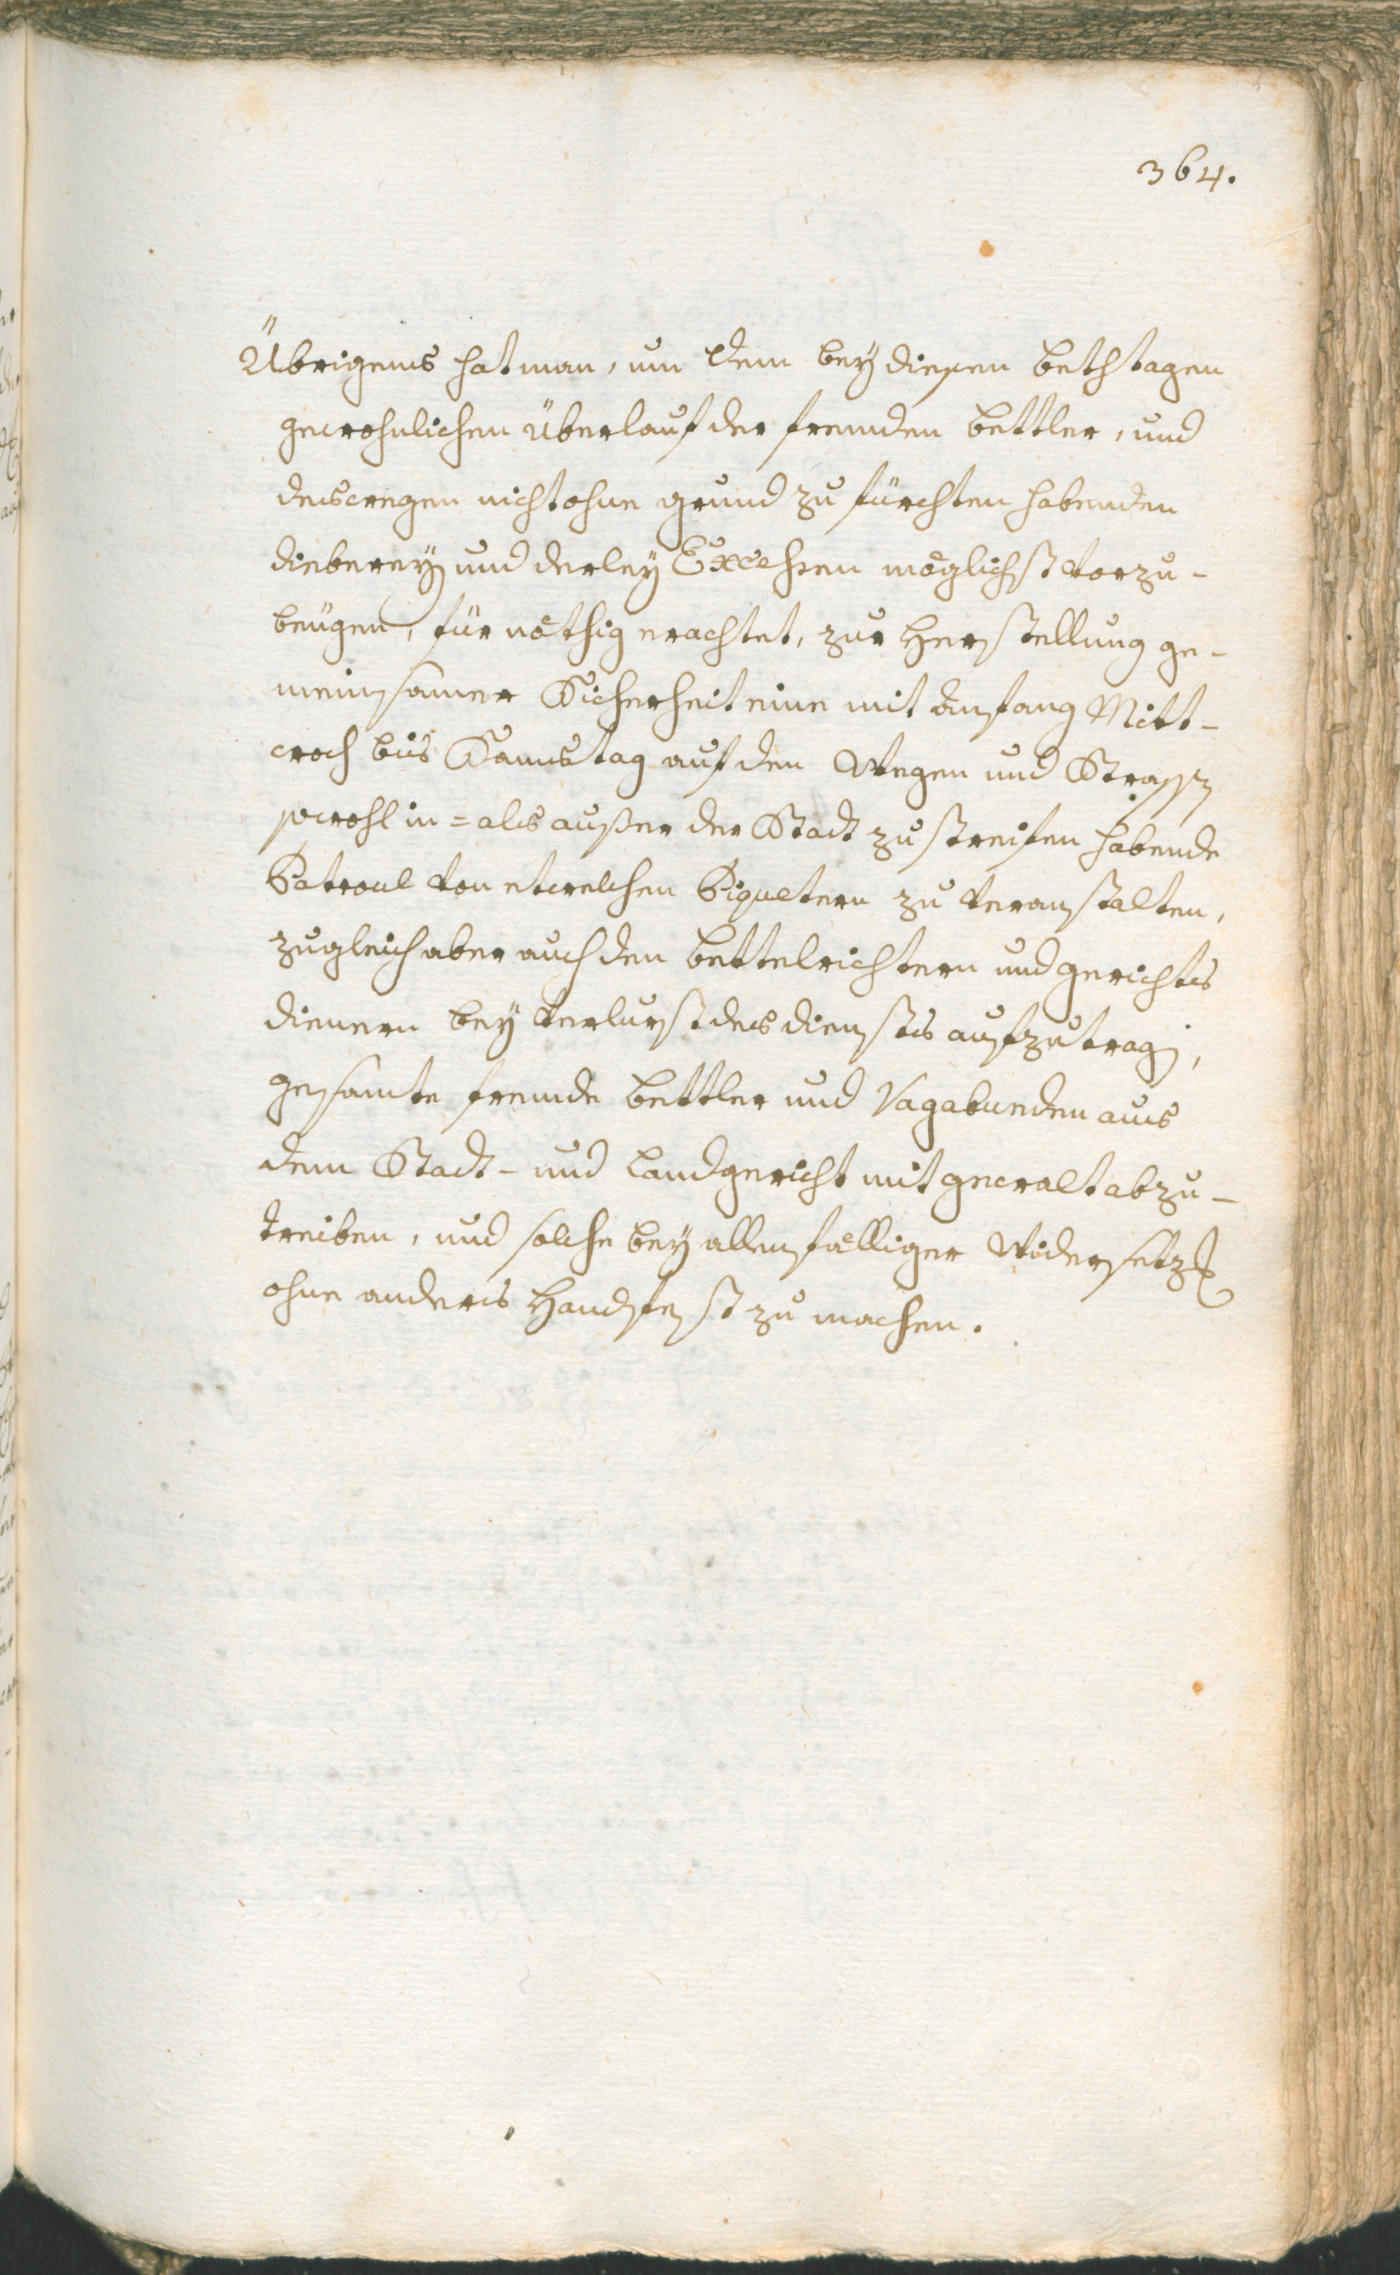 364.
Übrigens hat man, um dem beÿ diesen bethstagen
gewohnlichen Überlauf der fremden bettler, und
deswegen nicht ohne grund zu fürchten habenden
dieberey und derleÿ Excessen möglichst vorzu-
beügen, für nöthig erachtet, zur herstellung ge-
meinsamer Sicherheit eine mit anfang Mitt-
woch bis Samstag auf den Wegen und Strassen
sowohl in = als außer der Stadt zu streifen habende
Patroul von etwelchen Piqueten zu veranstalten,
zugleich aber auch den bettelrichtern und gerichts
dienern beÿ verlurst des diensts aufzutragen,
gesamte fremde bettler und Vagabunden aus
dem Stadt- und Landgericht mit gewalt abzu-
treiben, und solche beÿ allenfälliger Widersetzung
ohne anders handfest zu machen.